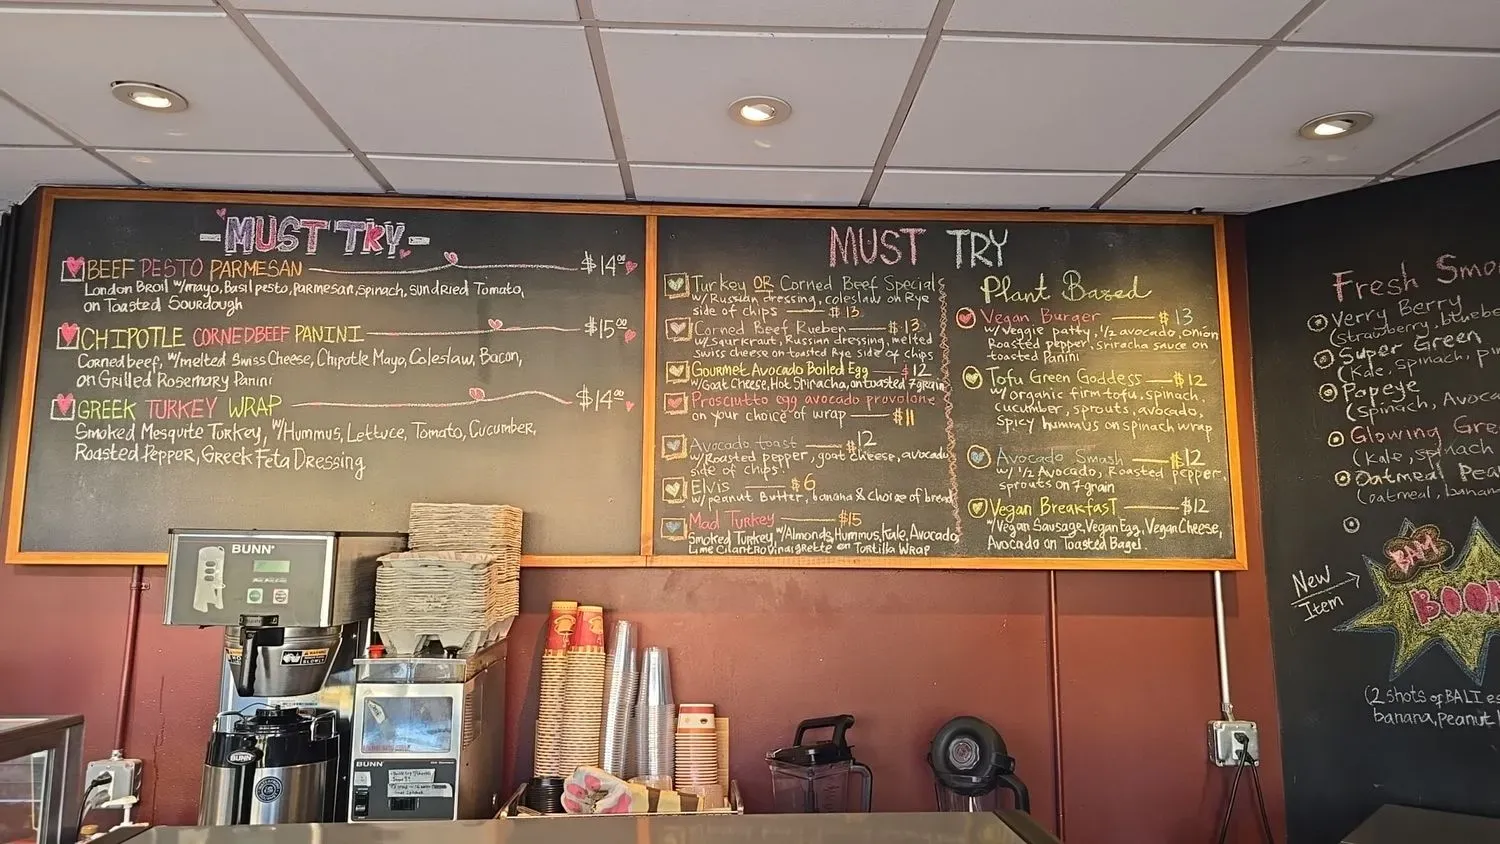 MUST TRY
BEEF PESTO PARMESAN $14.00
London Broil w/mayo, Basil pesto, parmesan, spinach, sundried Tomato,
on Toasted Sourdough
CHIPOTLE CORNEDBEEF PANINI $15.00
Corned beef, w/melted Swiss Cheese, Chipotle Mayo, Coleslaw, Bacon,
on Grilled Rosemary Panini
GREEK TURKEY WRAP $14.00
Smoked Mesquite Turkey, w/Hummus, Lettuce, Tomato, Cucumber,
Roasted Pepper, Greek Feta Dressing
MUST TRY
Turkey OR Corned Beef Special
w/Russian dressing, coleslaw on Rye
side of chips $13
Corned Beef Rueben $13
w/Saurkraut, Russian dressing, melted
Swiss cheese on toasted Rye side of chips
Gourmet Avocado Boiled Egg $12
w/Goat Cheese, Hot Spiracha, on toasted 7grain
Prosciutto egg avocado provolone
on your choice of wrap $11
Avocado toast $12
w/Roasted pepper, goat cheese, avocado
side of chips
Elvis $6
w/peanut Butter, banana & choice of bread
Mad Turkey $15
Smoked Turkey, w/Almonds, Hummus, Kale, Avocado,
Lime Cilantro Vinaigrette on Tortilla Wrap
Plant Based
Vegan Burger $13
w/Veggie patty, 1/2 avocado, onion
Roasted pepper, sriracha sauce on
toasted Panini
Tofu Green Goddess $12
w/organic firm tofu, spinach,
cucumber, sprouts, avocado,
spicy hummus on spinach wrap
Avocado Smash $12
w/ 1/2 Avocado, Roasted pepper,
sprouts on 7-grain
Vegan Breakfast $12
w/Vegan Sausage, Vegan Egg, Vegan Cheese,
Avocado on Toasted Bagel.
Fresh Smo
Verry Berry
(strawberry, bluebe
Super Green
(Kale, spinach, pin
Popeye
(spinach, Avoca
Glowing Gre
(kale, spinach
Oatmeal Pea
(oatmeal, banana
New
Item
BAM
BOOM
(2 shots of BALI es
banana, peanut
BUNN
BUNN
BUNN